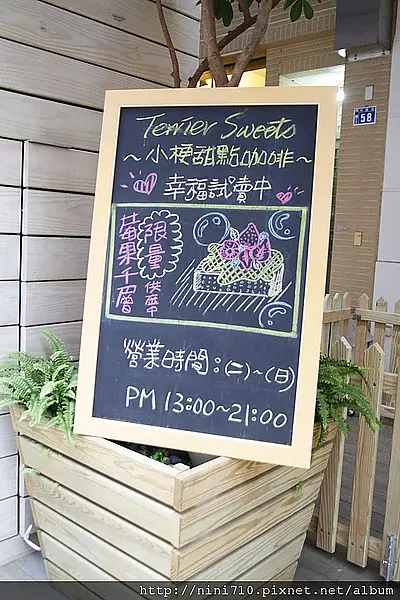 Terrier Sweets
~小梗甜點咖啡~
幸福試賣中
莓果千層
限量
供應中
營業時間:(二)~(日)
PM 13:00~21:00
58
http://nini710.pixnet.net/album